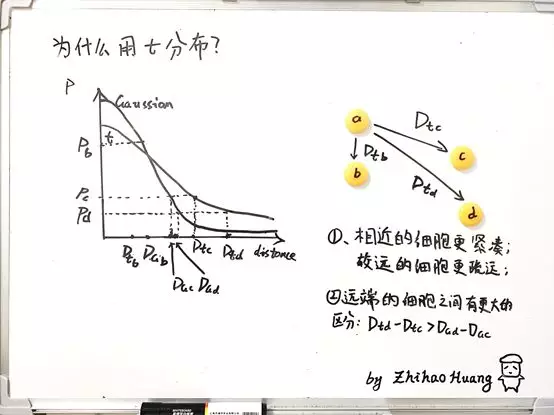 为什么用t分布?
P
Gaussion
t
Pb
Pc
Pd
Dtb
Dab
Dtc
Dtd
distance
Dac
Dad
a
b
c
d
Dtc
Dtb
Dtd
①、相近的细胞更紧凑;
较远的细胞更疏远;
②远端的细胞之间有更大的
区分: Dtd-Dtc>Dad-Dac
by Zhihao Huang